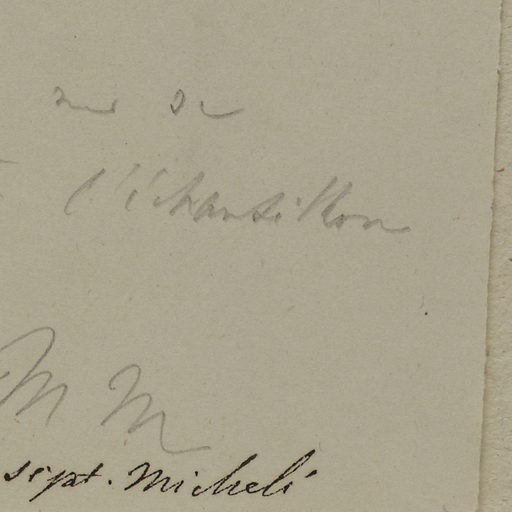 de
l'échantillon
M M
sept. Micheli